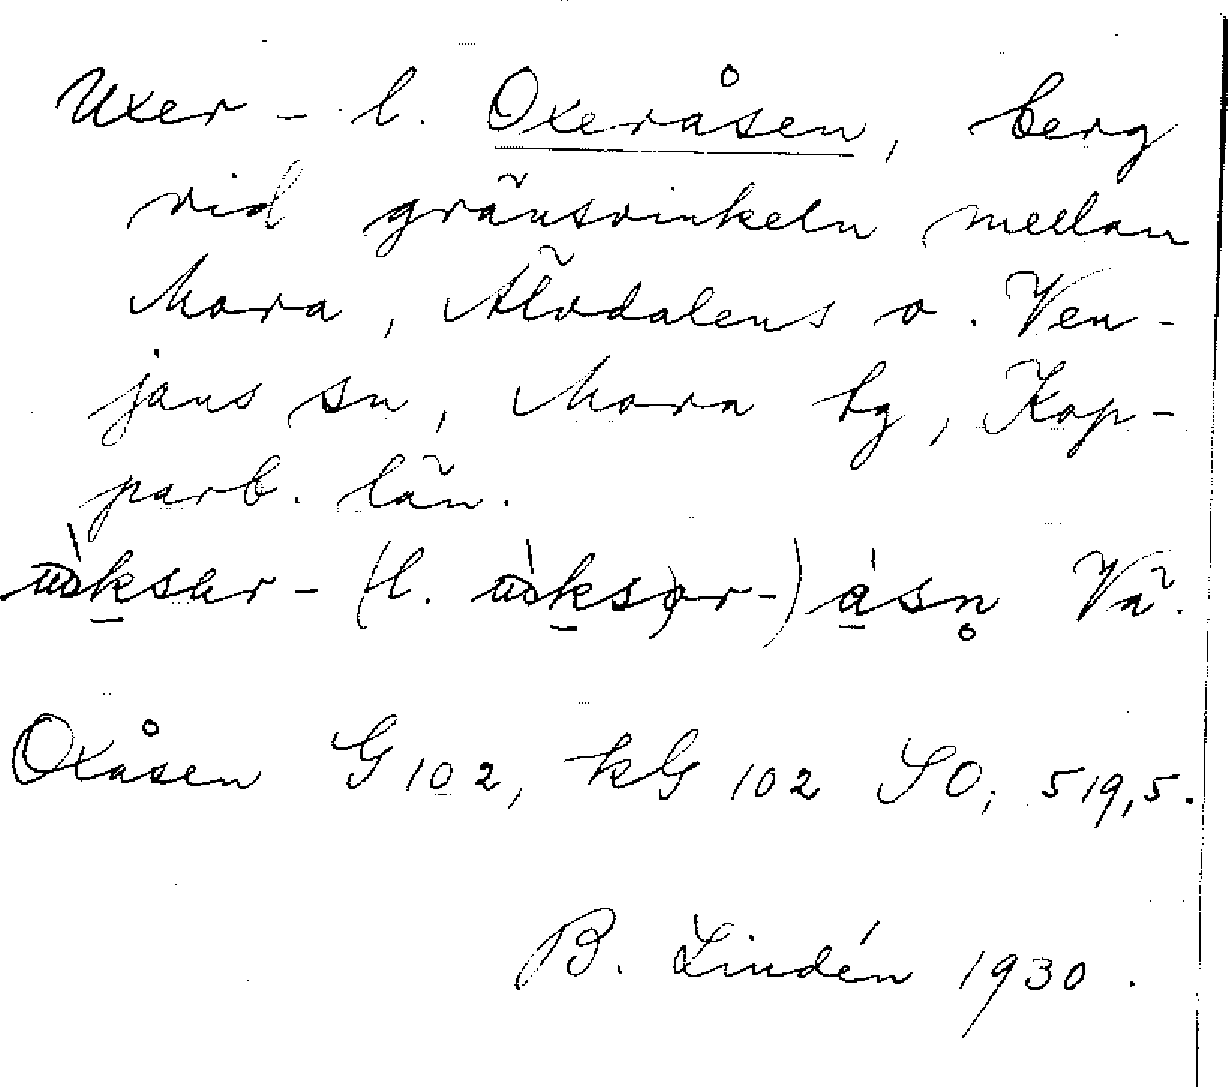 Uxer- l. Oxeråsen, berg
vid gränsvinkeln mellan
Mora, Älvdalens o. Ven-
jans sn, Mora tg, Kop-
parb. län.
(l. åsn Vä.
Oxåsen G 102, kG 102 SO; 519,5.
B. Lindén 1930.